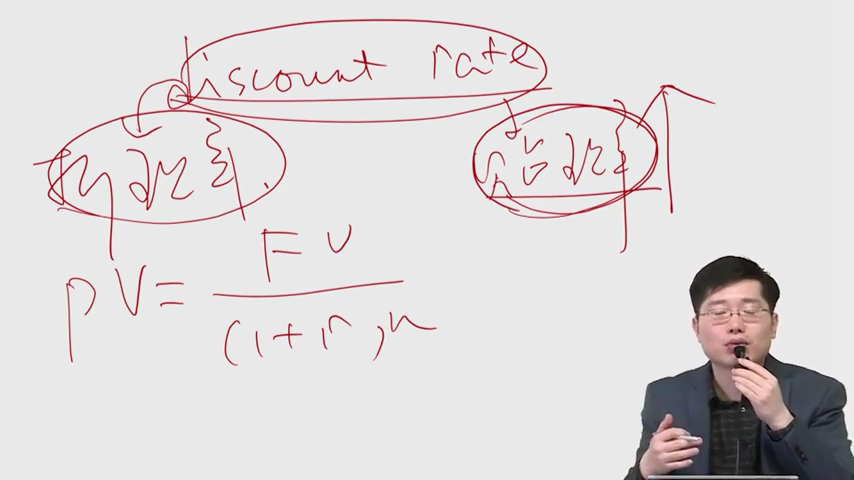 discount rate
折现率 贴现率
PV = FV
(1+r)n